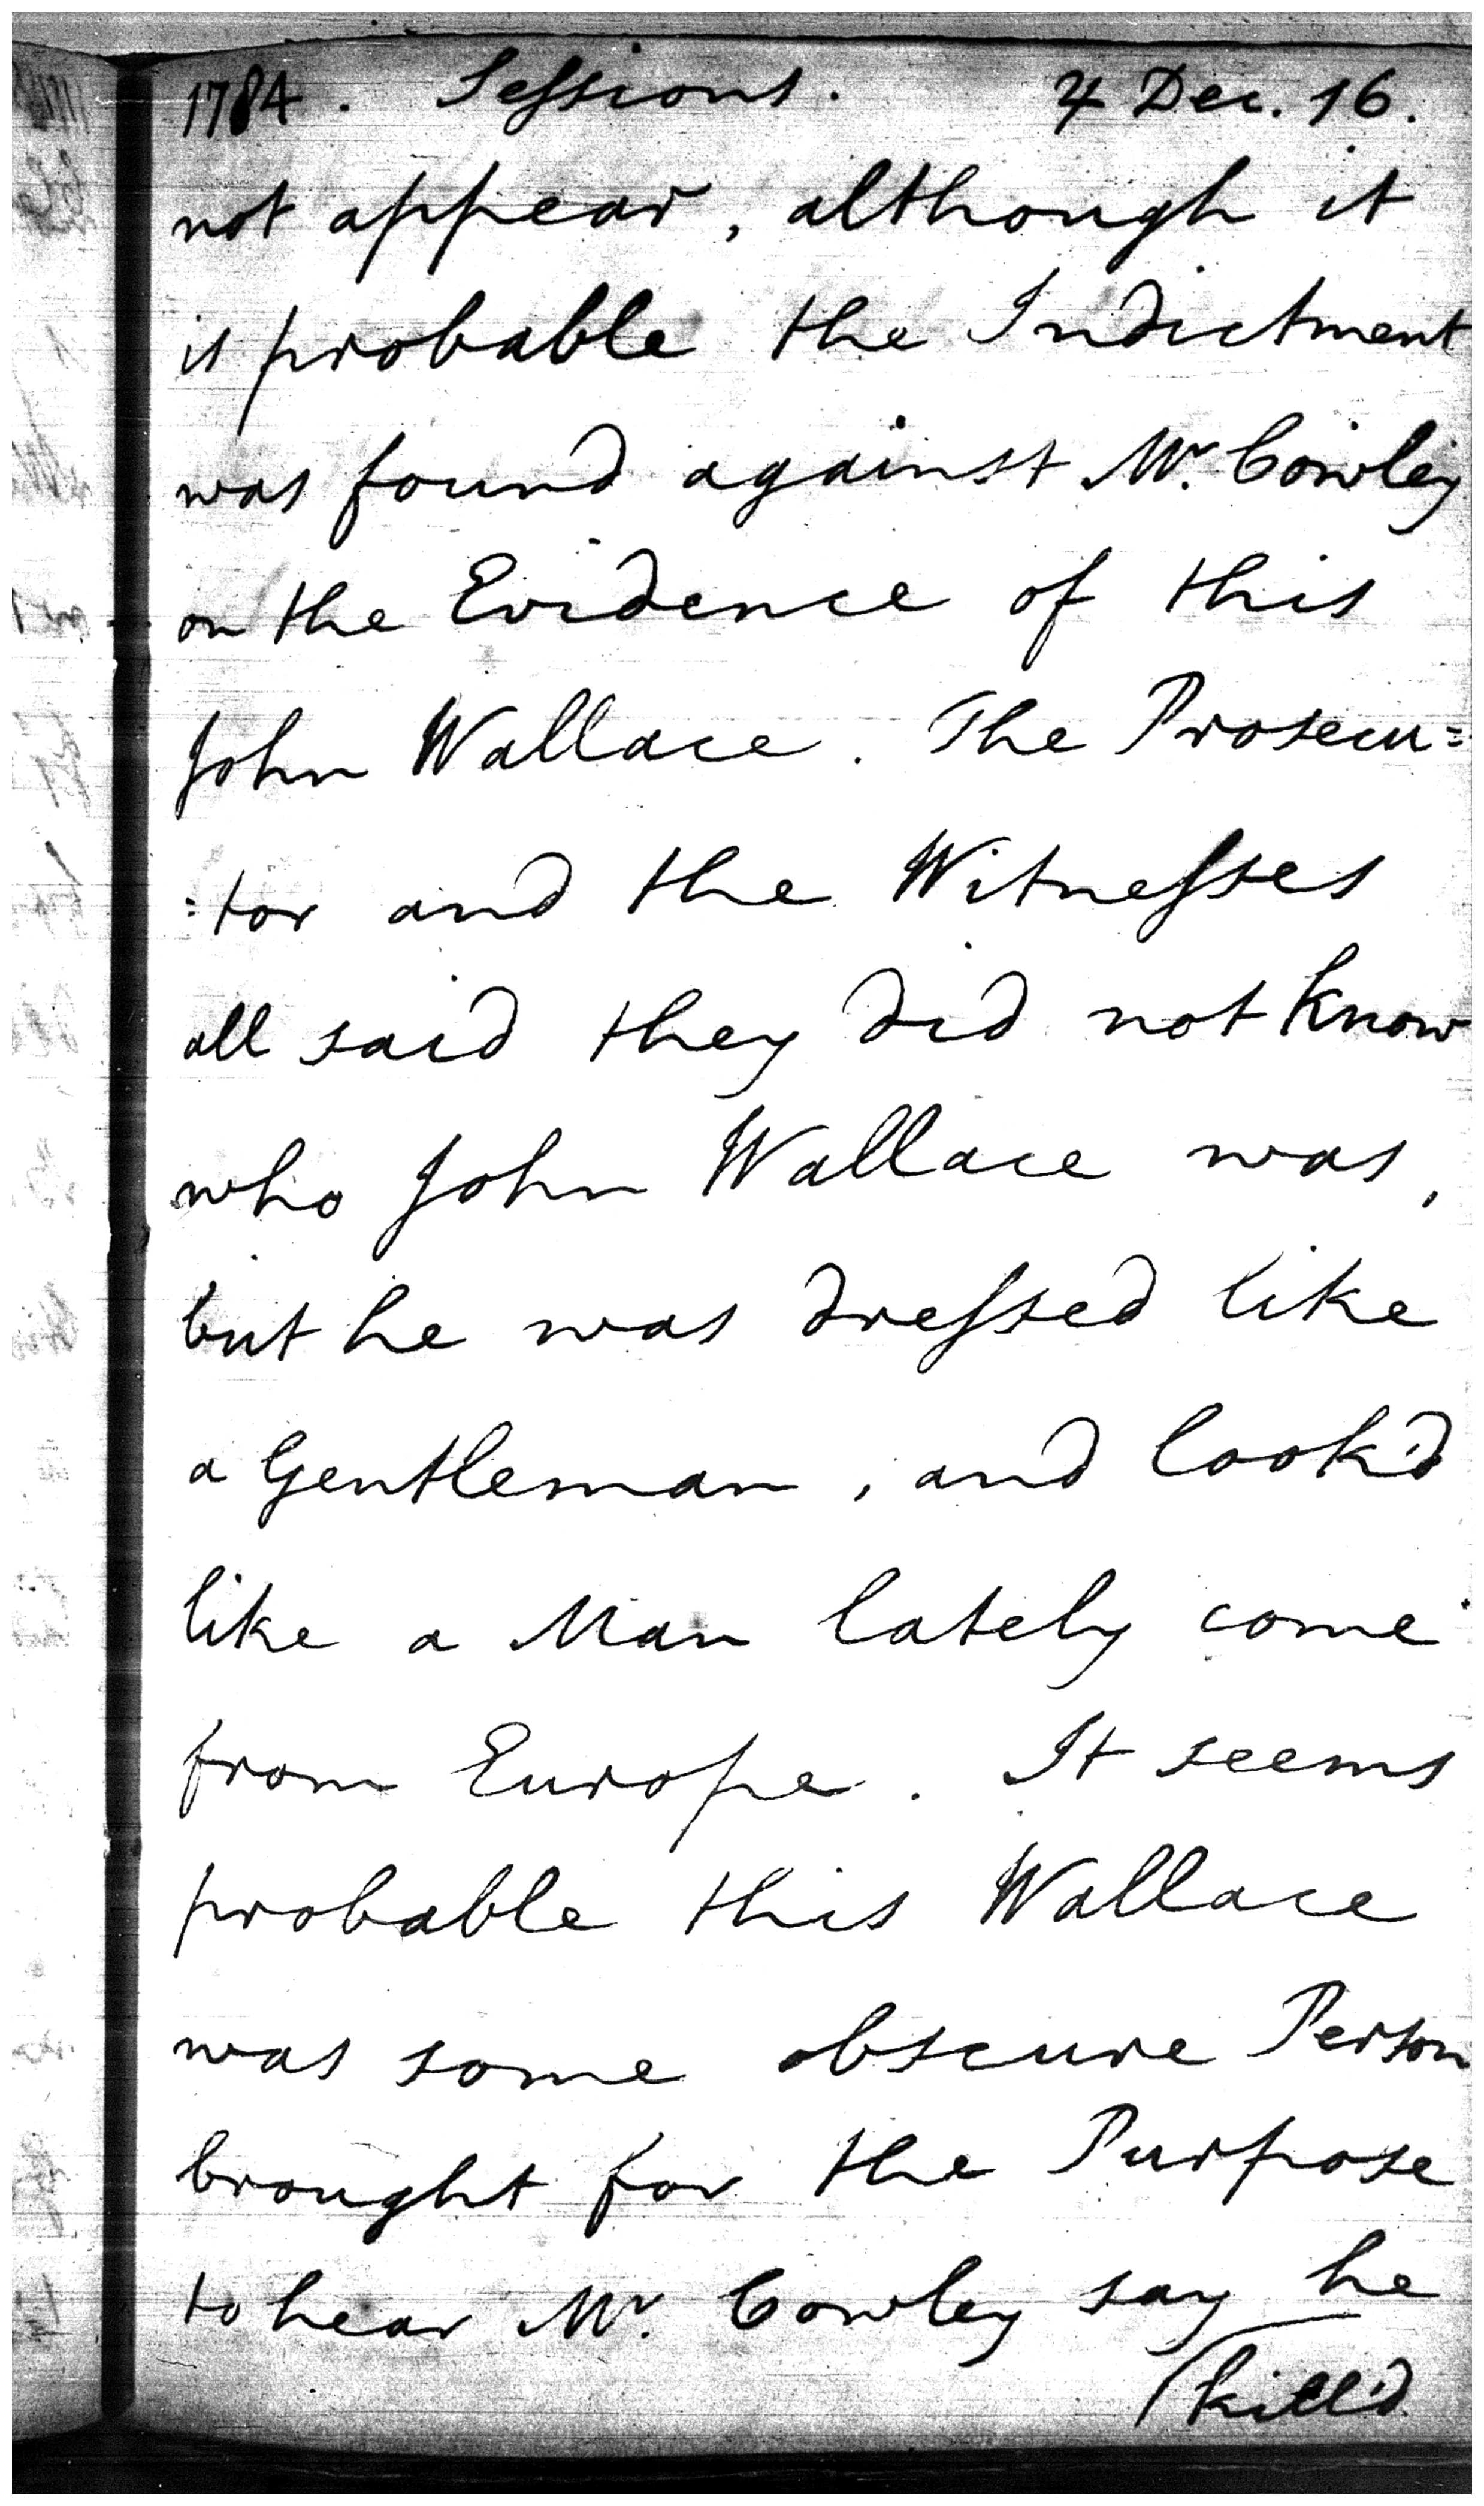 1784. Sessions. 4 Dec. 16.
not appear, although it
is probable the Indictment
was found against Mr. Cowley
on the Evidence of this
John Wallace. The Prosecu=
=tor and the Witnesses
all said they did not know
who John Wallace was,
but he was dressed like
a Gentleman, and look'd
like a Man lately come
from Europe. It seems
probable this Wallace
was some obscure Person
brought for the Purpose
to hear Mr. Cowley say he
kill'd